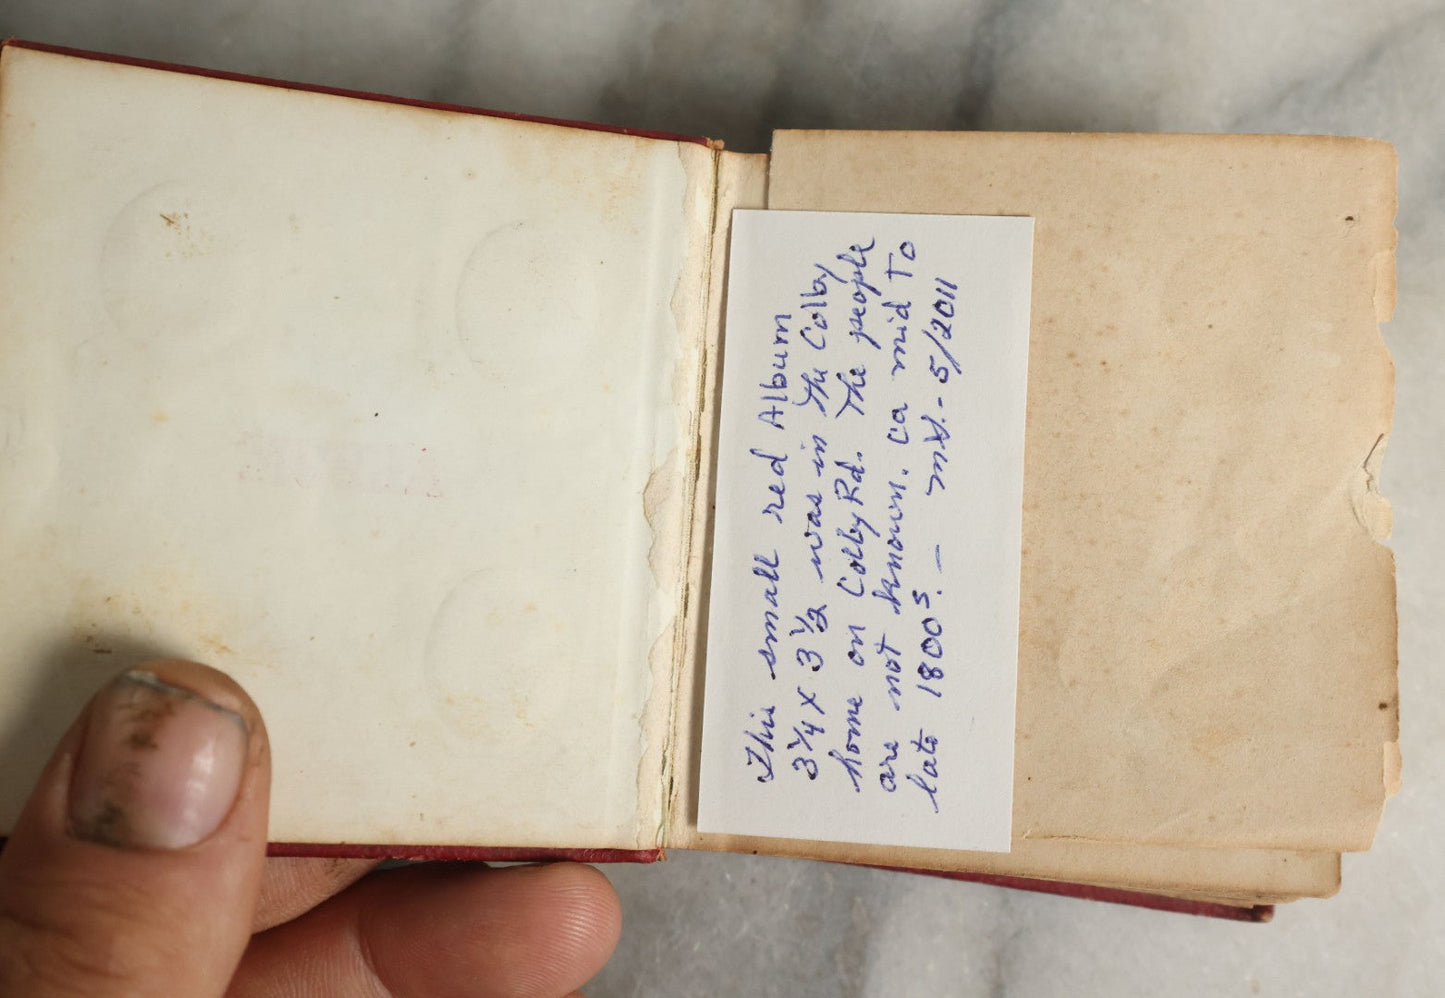 This small red Album
3 1/4 x 3 1/2 was in the Colby
home on Colby Rd. The people
are not known. ca mid to
late 1800s. — MH. - 5/2011